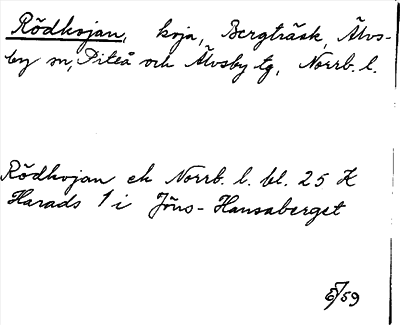 Rödkojan, koja, Bergträsk, Älvs-
by sn, Piteå och Älvsby tg, Norrb. l.
Rödkojan ek Norrb. l. bl. 25 K
Harads 1 i Jöns-Hansaberget
59